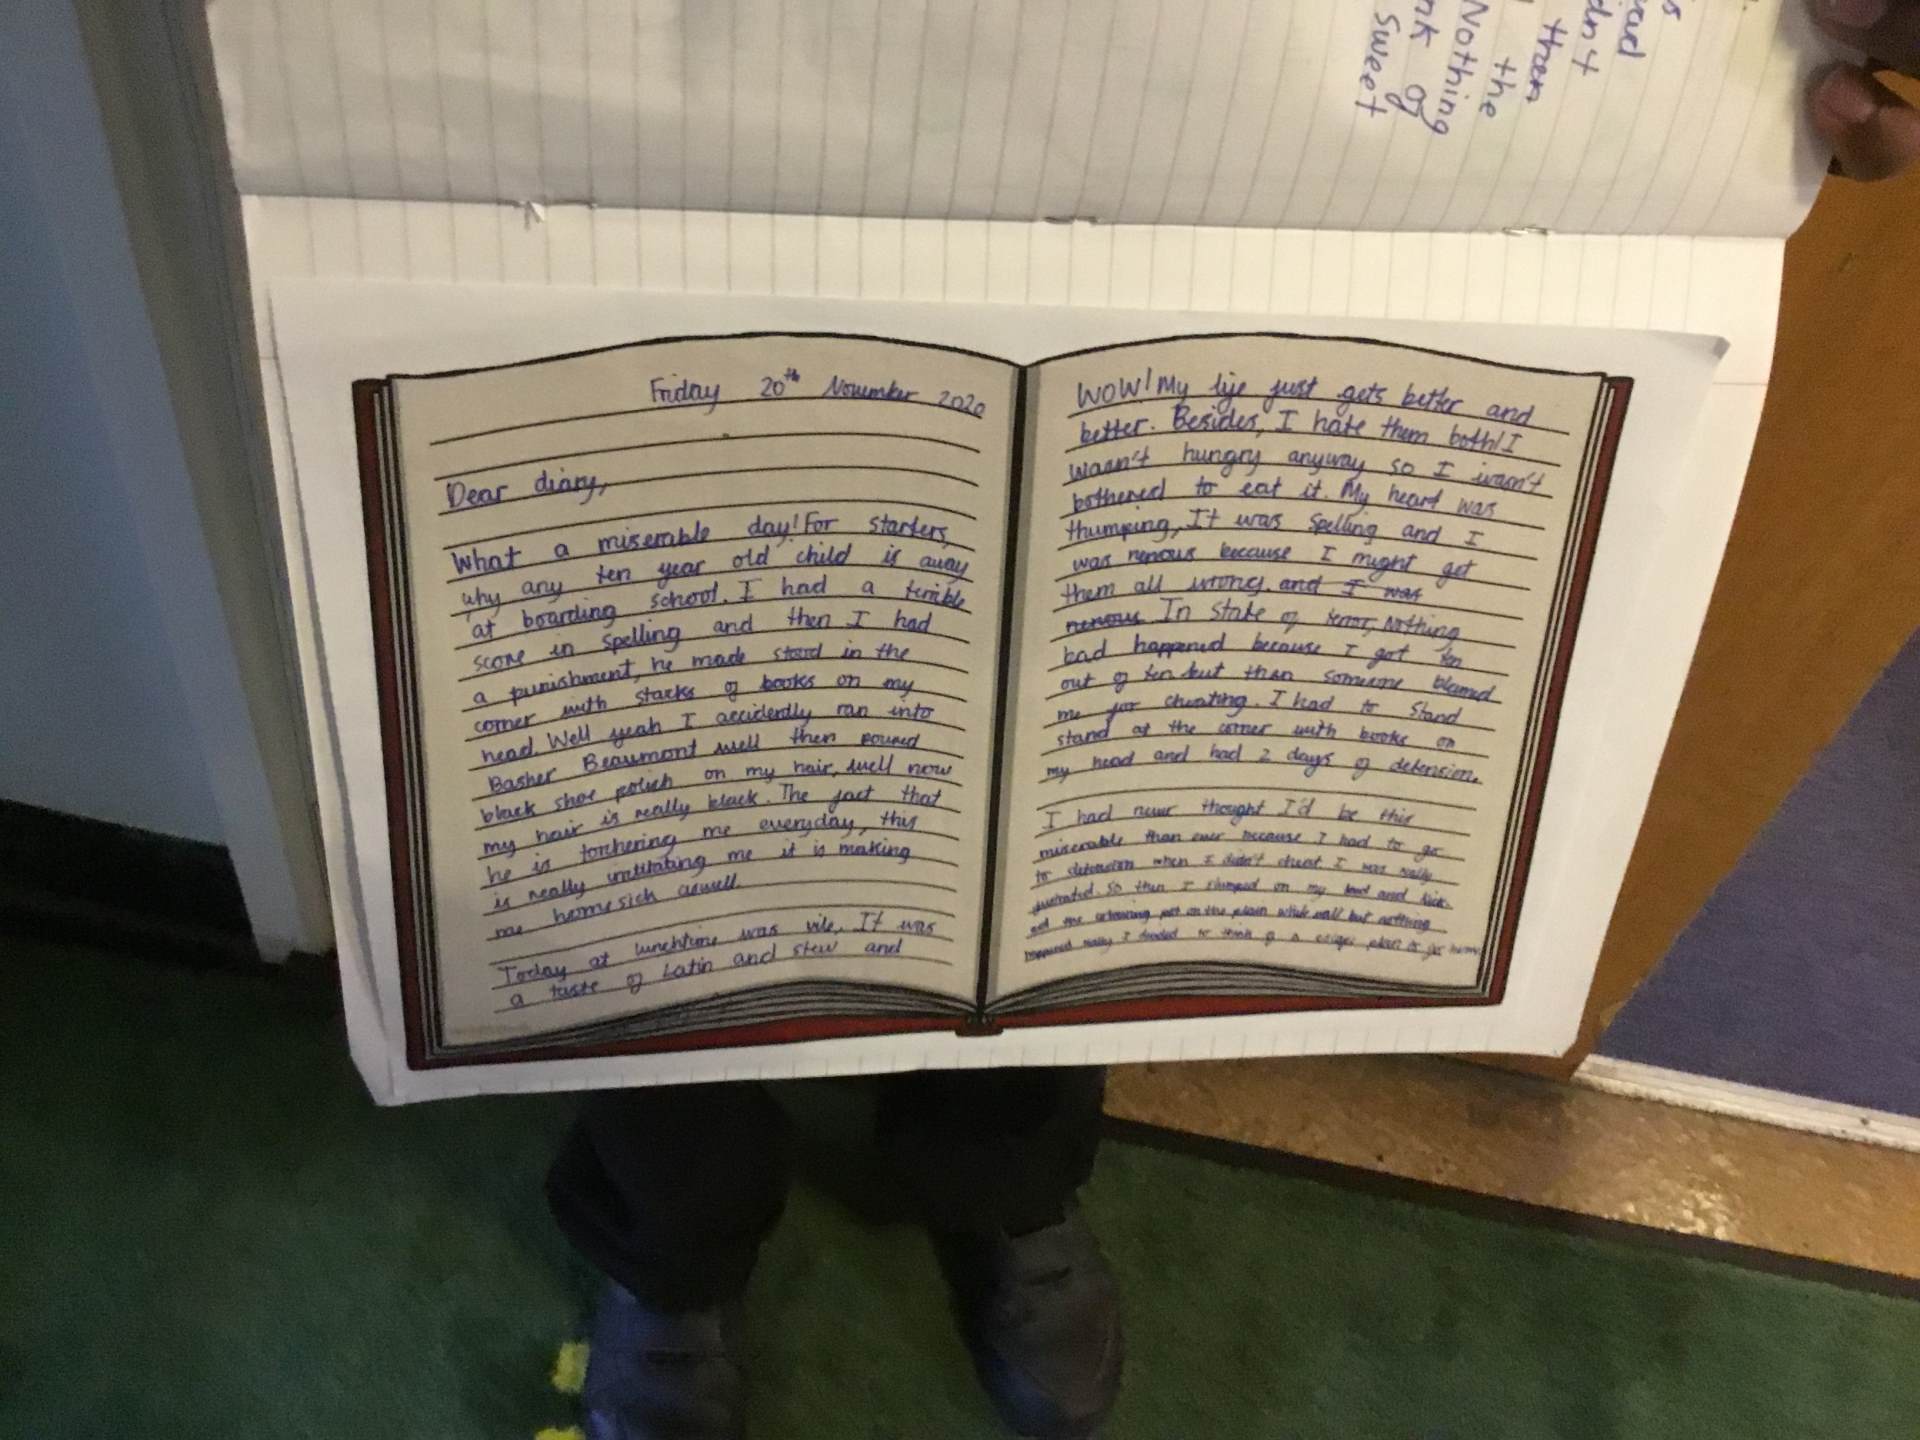 is
Nothing
the
then
of
Sweet
Friday 20th November 2020
Dear diary,
What a miserable day! For starters,
why any ten year old child is away
at boarding school. I had a terrible
score in spelling and then I had
a punishment, he made stood in the
corner with stacks of books on my
head. Well yeah I accidently ran into
Basher Beaumont well then poured
black shoe polish on my hair, well now
my hair is really black. The fact that
he is torchering me everyday, this
is really irritating me it is making
me homesick aswell.
Today at lunchtime was vile. It was
a taste of Latin and stew and
WOW! My life just gets better and
better. Besides, I hate them both! I
wasn't hungry anyway so I wasn't
bothered to eat it. My heart was
thumping, It was spelling and I
was nervous because I might get
them all wrong. and I was
nervous In state of terror, Nothing
bad happened because I got ten
out of ten but then someone blamed
me for cheating. I had to stand
stand at the corner with books on
my head and had 2 days of detension.
I had never thought I'd be this
miserable than ever because I had to go
to detension when I didn't cheat. I was really
frustrated so then I slumped on my bed and kick-
ed the colouring pot on the plain white wall but nothing
happened really I decided to think of a escape plan to go home